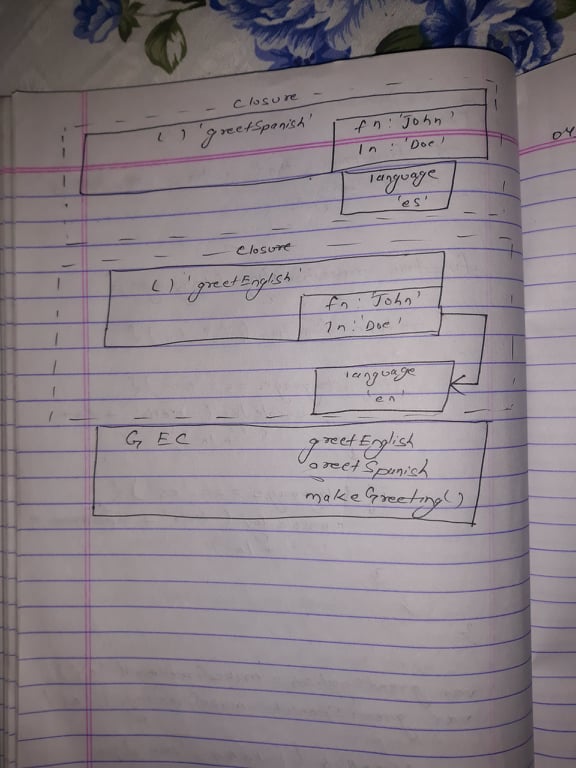 closure
( ) 'greetSpanish'
fn : 'John'
ln : 'Doe'
language
'es'
closure
( ) 'greetEnglish'
fn : 'John'
ln : 'Doe'
language
'en'
G EC greetEnglish
greetSpanish
makeGreeting()
04